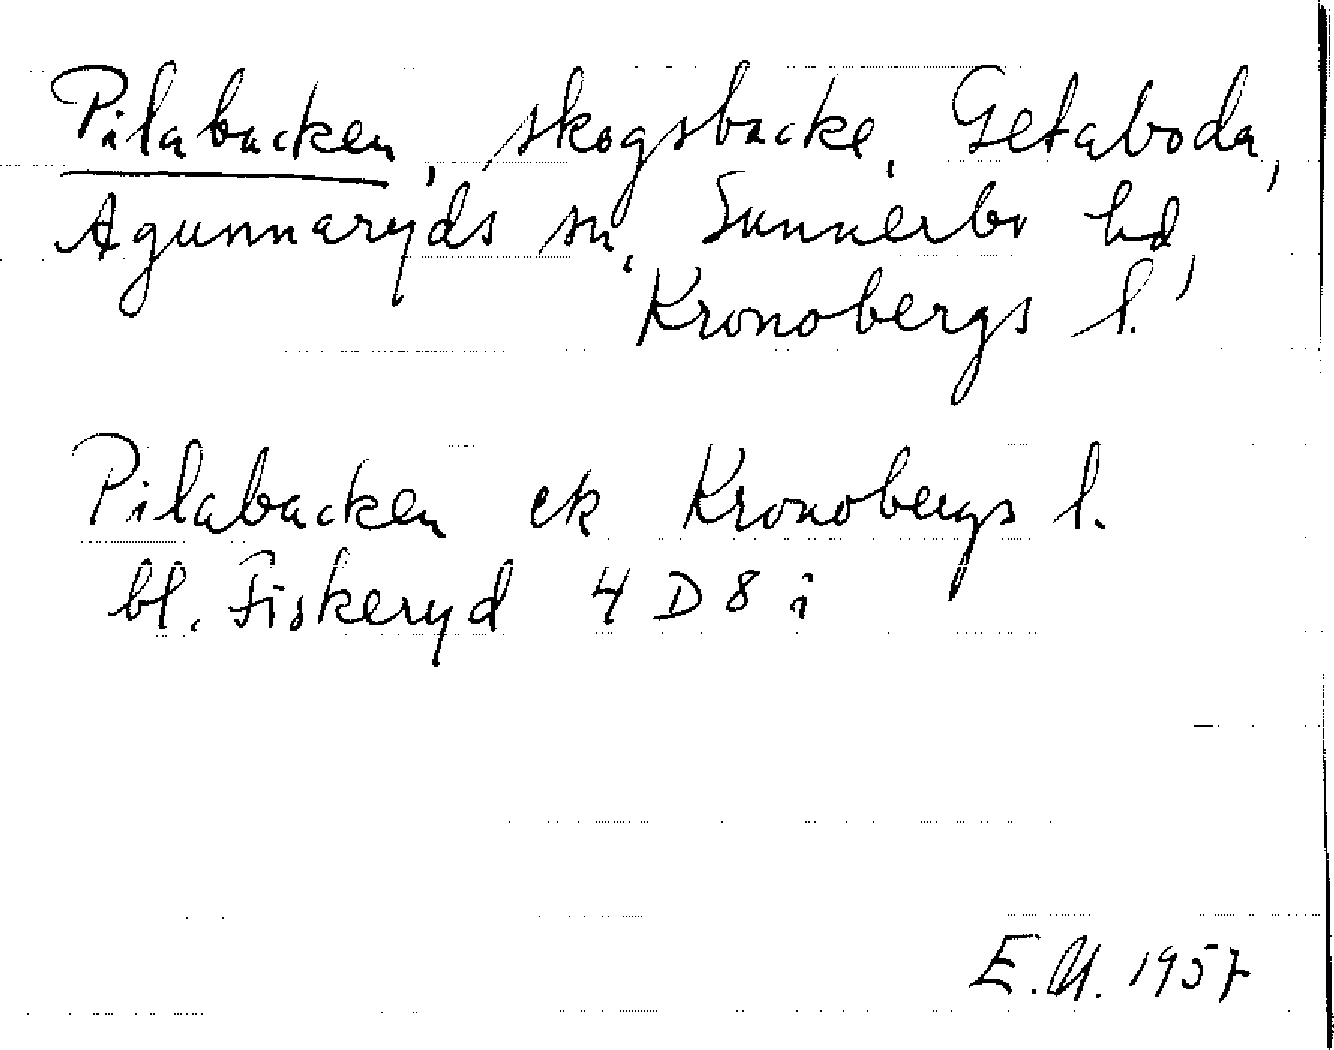 Pilabacken, skogsbacke, Getaboda,
Agunnaryds sn, Sunnerbo hd,
Kronobergs l.
Pilabacken ek Kronobergs l.
bl. Fiskeryd 4 D 8 i
E.U. 1957